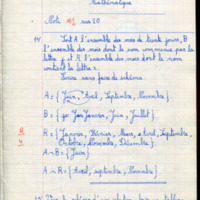 Mathématique
Note sur 20
1°/ Soit A l'ensemble des mois de trente jours, B
l'ensemble des mois dont le nom commence par la
lettre j et R l'ensemble des mois dont le nom
contient la lettre r.
Écrire sans faire de schéma.
A = {Juin, Avril, Septembre, Novembre}
B = {Janvier, Juin, Juillet}
R = {Janvier, Février, Mars, Avril, Septembre,
Octobre, Novembre, Décembre}
A ∩ B = {Juin}
A ∩ R = {Avril, septembre, Novembre}